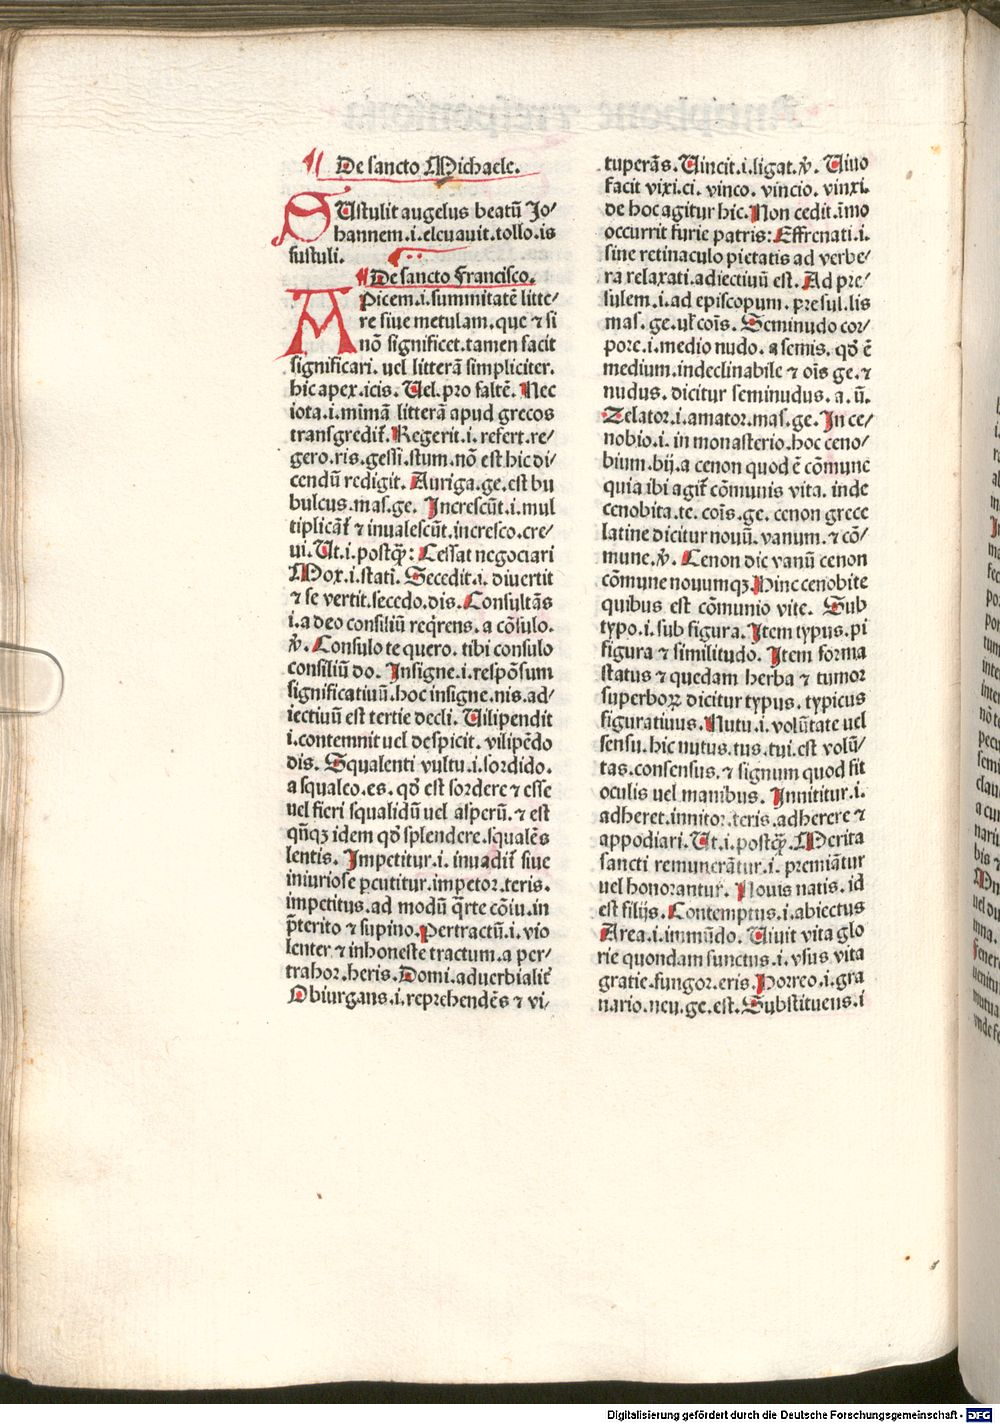 De sancto Michaele.
SUstulit augelus beatū Jo/
hannem.i.elcuauit.tollo.is
sustuli.
De sancto Francisco.
APicem.i.summitatē litte/
re siue metulam.que ⁊ si
nō significet.tamen facit
significari. uel litterā simpliciter.
hic apex.icis. Uel.pro saltē. Nec
iota.i.mimā litterā apud grecos
transgredit᷑. Regerit.i.refert.re/
gero.ris.gessi.stum.nō est hic di/
cendū redigit. Auriga.ge.est bu
bulcus.mas.ge. Increscūt.i.mul
tiplicāt᷑ ⁊ inualescūt.incresco.cre/
ui. Ut.i.postqꝫ: Cessat negociari
Mox.i.stati. Secedit.i. diuertit
⁊ se vertit.secedo.dis. Consultās
i.a deo consiliū reqrens. a cōsulo.
ꝟ. Consulo te quero. tibi consulo
consiliū do. Insigne.i.respōsum
significatiuū.hoc insigne.nis.ad/
iectiuū est tertie decli. Uilipendit
i.contemnit uel despicit. vilipēdo
dis. Squalenti vultu.i.sordido.
a squaleo.es. qd̓ est sordere ⁊ esse
uel fieri squalidū uel asperū. ⁊ est
qn̄qꝫ idem qd̓ splendere.squalēs
lentis. Impetitur.i. inuadit᷑ siue
iniuriose ꝑcutitur.impetor.teris.
impetitus.ad modū q̄rte cōiu.in
p̄terito ⁊ supino. Pertractū.i.vio
lenter ⁊ inhoneste tractum.a per/
trahor.heris. Domi.aduerbialit᷑
Obiurgans.i.reprehendēs ⁊ vi/
tuperās. Uincit.i.ligat.ꝟ. Uiuo
facit vixi.ci. vinco. vincio. vinxi.
de hoc agitur hic. Non cedit.īmo
occurrit furie patris: Effrenati.i.
sine retinaculo pietatis ad verbe/
ra relaxati.adiectiuū est. Ad pre/
sulem.i.ad episcopum. presul.lis
mas.ge.ul̓ coīs. Seminudo cor/
pore.i.medio nudo. a semis. qd̓ ē
medium.indeclinabile ⁊ oīs ge.⁊
nudus. dicitur seminudus. a. ū.
Zelator.i.amator.mas.ge. In ce/
nobio.i. in monasterio.hoc ceno/
bium.bij.a cenon quod ē cōmune
quia ibi agit᷑ cōmunis vita. inde
cenobita.te. coīs.ge. cenon grece
latine dicitur nouū. vanum. ⁊ cō/
mune.ꝟ. Cenon dic vanū cenon
cōmune nouumqꝫ. Hinc cenobite
quibus est cōmunio vite. Sub
typo.i.sub figura. Item typus.pi
figura ⁊ similitudo. Item forma
status ⁊ quedam herba ⁊ tumor
superboꝝ dicitur typus. typicus
figuratiuus. Nutu.i. volūtate uel
sensu. hic nutus.tus.tui.est volū/
tas.consensus.⁊ signum quod fit
oculis uel manibus. Innititur.i.
adheret.innitor.teris.adherere ⁊
appodiari. Ut.i.postqꝫ. Merita
sancti remunerātur.i. premiātur
uel honorantur. Nouis natis. id
est filijs. Contemptus.i.abiectus
Area.i.immūdo. Uiuit vita glo
rie quondam functus.i.vsus vita
gratie.fungor.eris. Horreo.i.gra
nario.neu.ge.est. Substituens.i
Digitalisierung gefördert durch die Deutsche Forschungsgemeinschaft - DFG